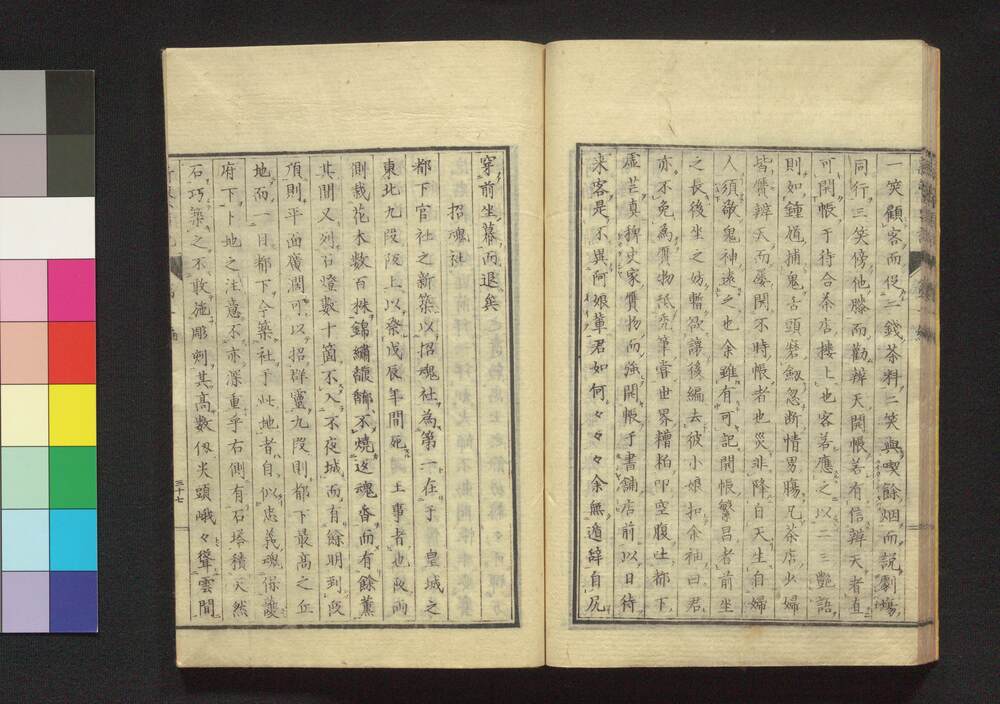 一笑顧客而促二錢茶料二笑與喫餘烟而説劇塲
同行三笑傍他膝而勸辨天開帳善有信辨天者直
可開帳于待合茶店樓上也客若應之以二三艶語
則如鍾馗捕鬼舌頭磨劔忽断情男膓兄茶店少婦
皆質辨天而屡開不時帳者也災非降自天生自婦
人須敬鬼神遠之也余雖有可記開帳繁昌者前坐
之長後坐之妨暫欲讓後編去彼小娘扣余袖曰君
亦不免為質物抵禿筆嘗世界糟粕叩空腹吐都下
虚芸真稗史家質物而強開帳于書舗店前以日待
来客是不與阿娘輩君如何々々々余無遁辞自尻
穿前坐幕而退矣
招魂社
都下官社之新築以招魂社為第一在于皇城之
東北九段阪上以祭戊辰年間死王事者也阪両
測裁花木数百株錦繍馥郁不燒返魂香而有餘薫
其間又列石燈數十箇不入不夜城而有餘明到阪
頂則平面廣濶可以招群靈九段則都下最高之丘
地而一目都下今築社于此地者自似忠義魂保護
府下卜地之注意不亦深重乎右側有石塔積天然
石巧築之不收施彫刻其高數仭尖頭峨々聳雲間
三十七